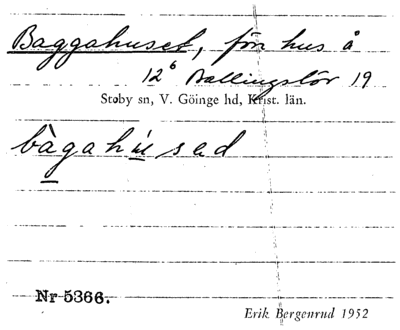 Baggahuset, förr hus å
12⁶ Ballingslöv 19
Stoby sn, V. Göinge hd, Krist. län.
bàgahúsad
Nr 5366.
Erik Bergenrud 1952